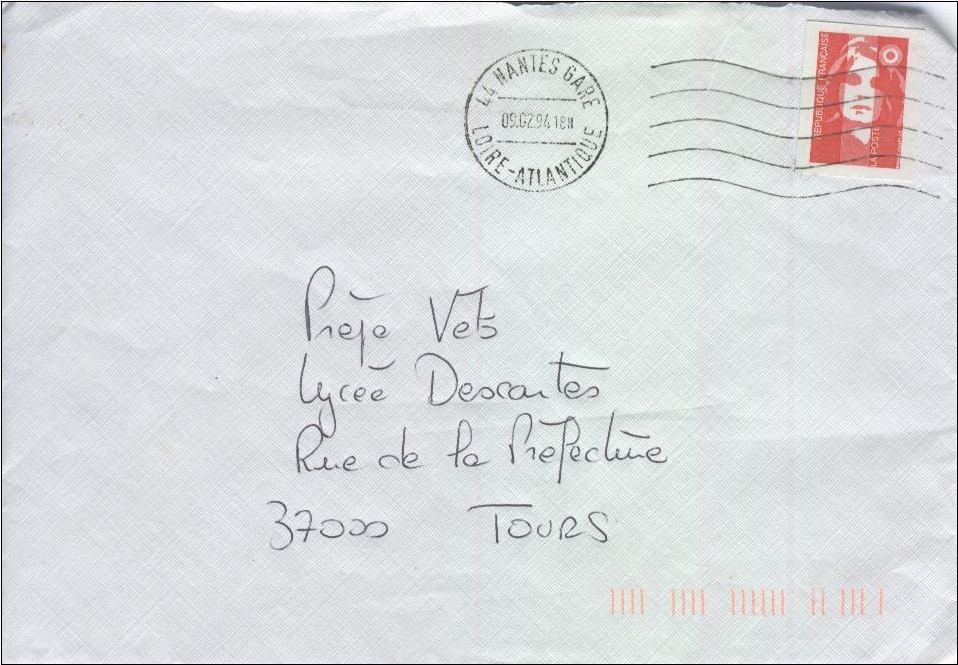 44 NANTES GARE
09.02.94 18H
LOIRE-ATLANTIQUE
RÉPUBLIQUE FRANÇAISE
LA POSTE
Prépa Veto
Lycée Descartes
Rue de la Préfecture
37000 TOURS